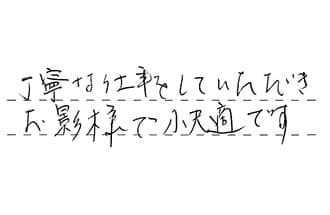 丁寧な仕事をしていただき
お影様で快適です